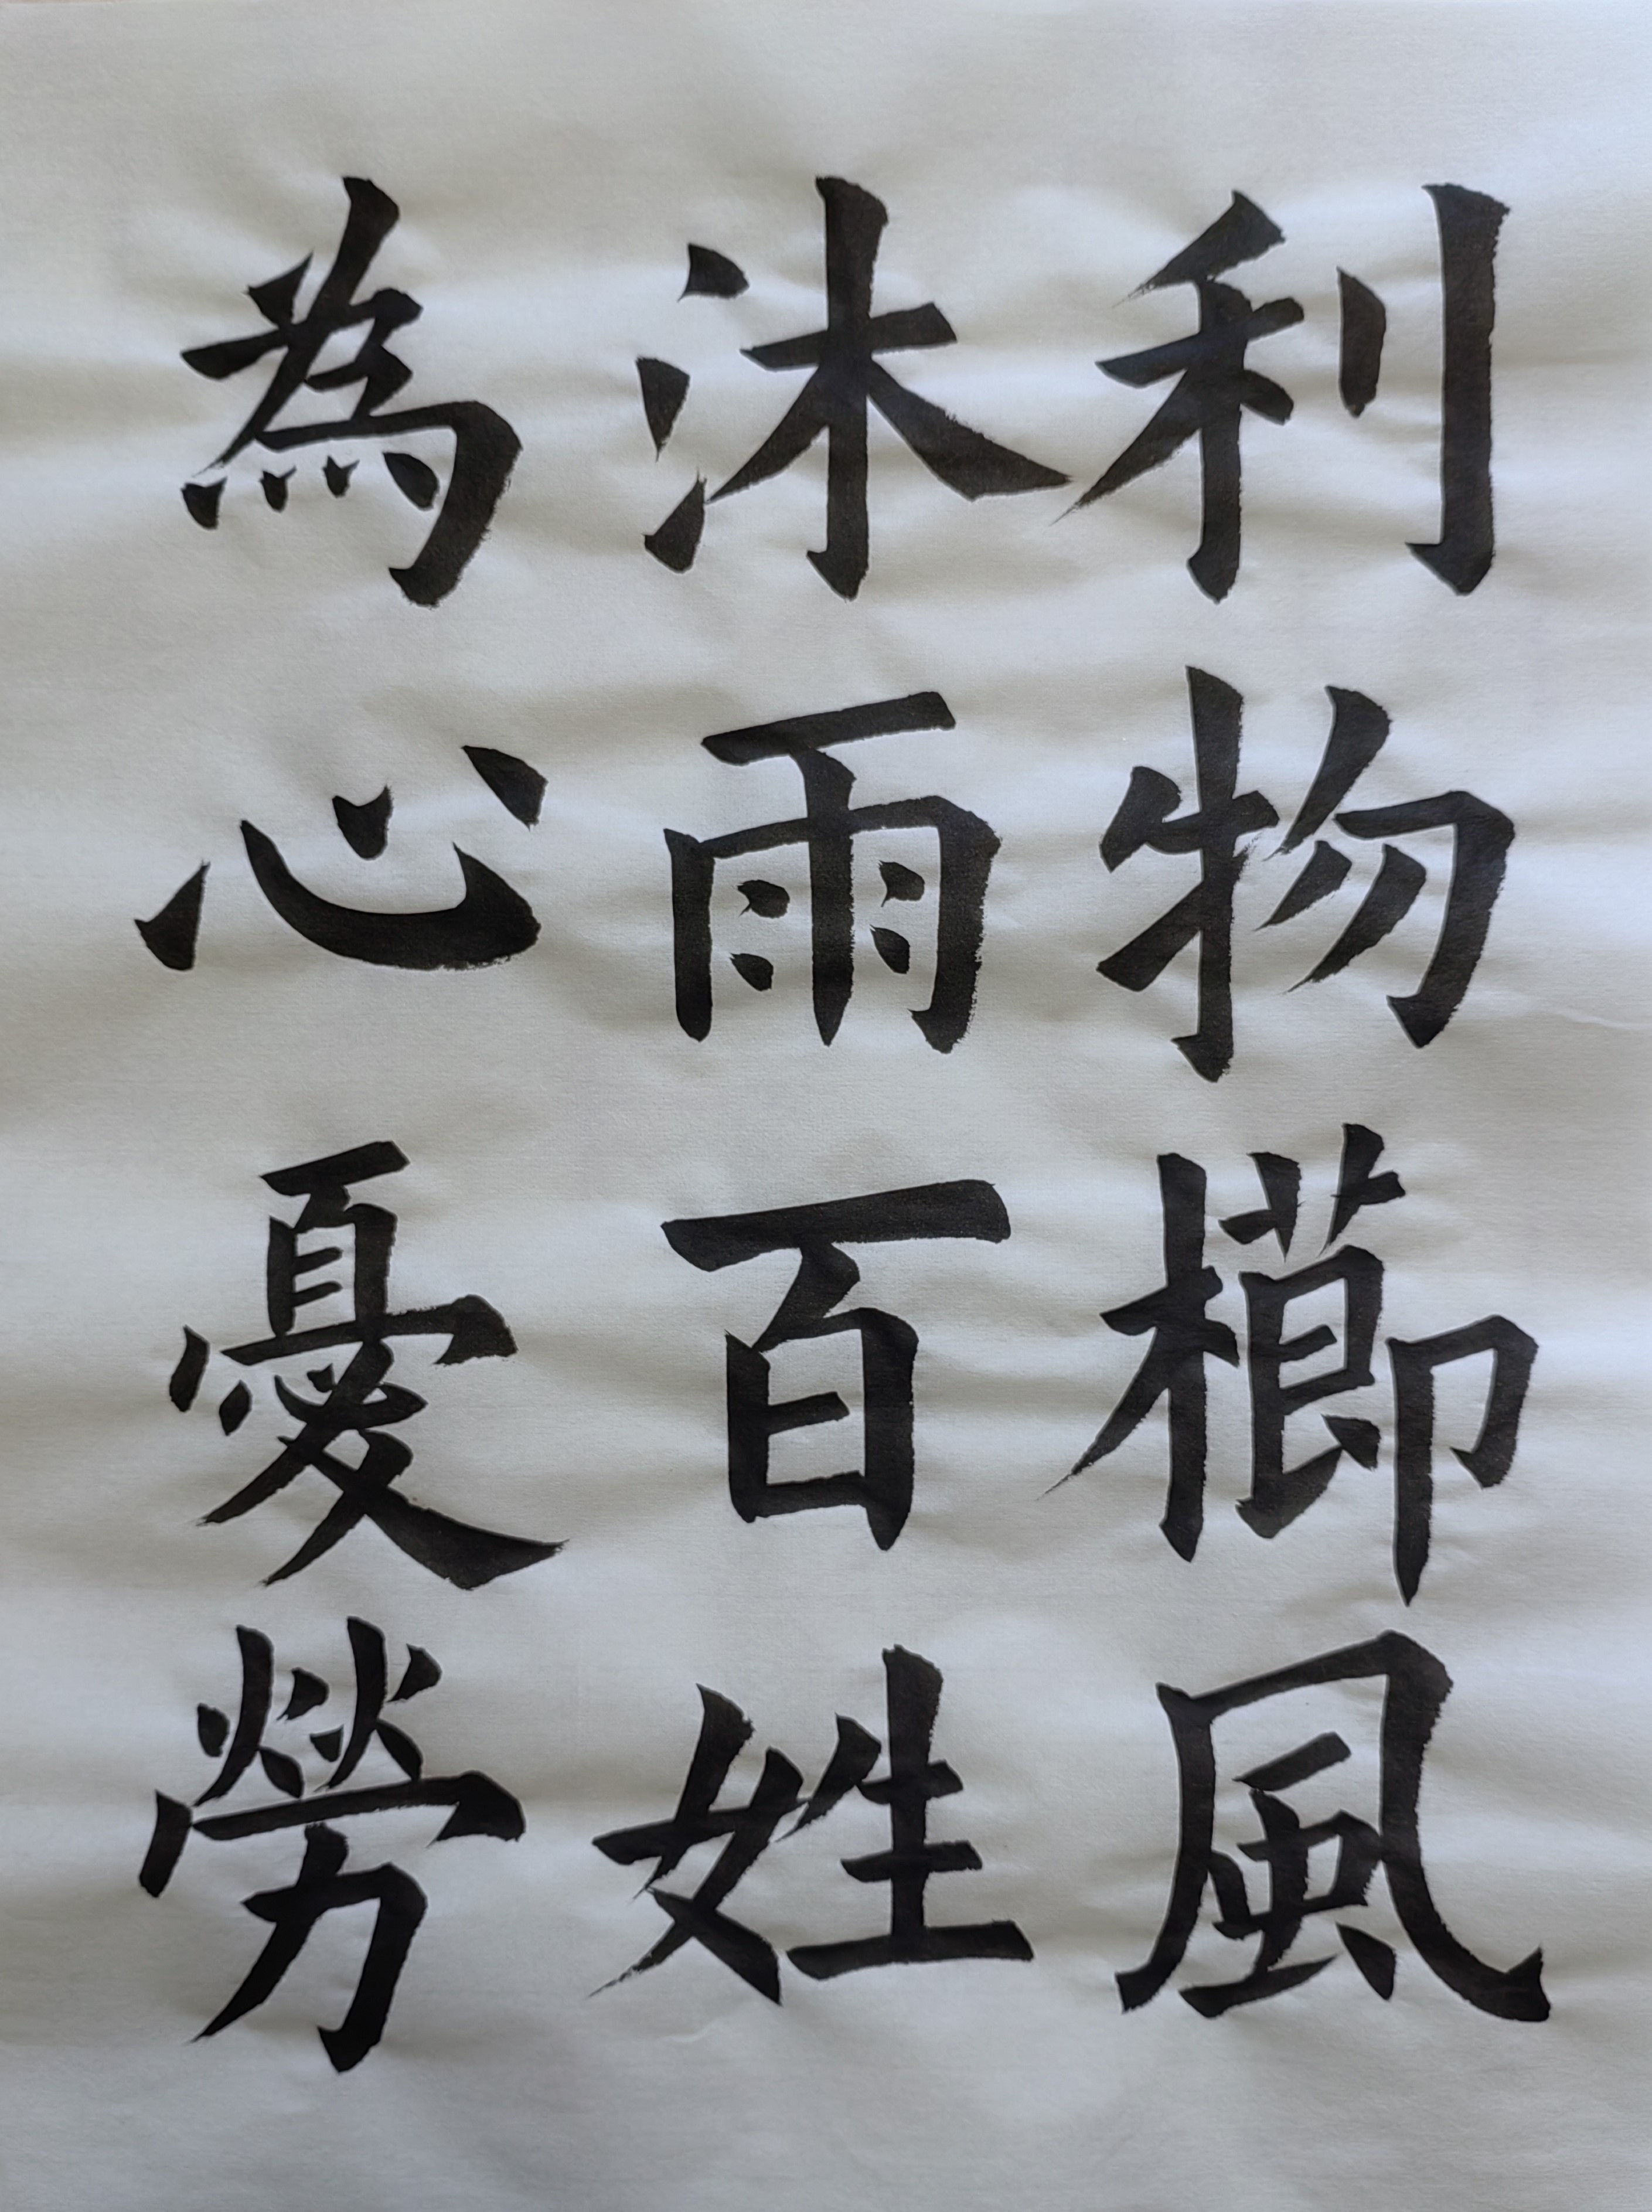 利物櫛風
沐雨百姓
為心憂勞